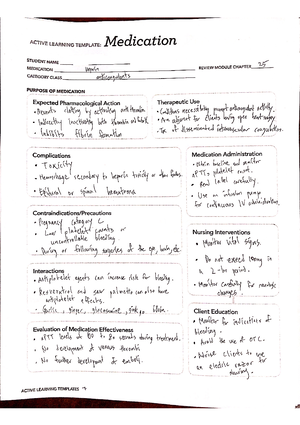 ACTIVE LEARNING TEMPLATE: Medication
STUDENT NAME
MEDICATION heparin REVIEW MODULE CHAPTER 25
CATEGORY CLASS anticoagulants
PURPOSE OF MEDICATION
Expected Pharmacological Action
Prevents clotting by activating antithrombin
Indirectly inactivating both thrombin
Inhibits fibrin formation
Therapeutic Use
Conditions necessitating prompt anticoagulant activity.
An adjunct for clients having open heart surgery.
Tx of disseminated intravascular coagulation.
Complications
Toxicity
Hemorrhage secondary to heparin toxicity
Epidural or spinal hematoma
Medication Administration
aPTT platelet count.
Read label carefully.
Use an infusion pump
for continuous IV administration.
Contraindications/Precautions
Pregnancy category C
Low platelet counts or
uncontrollable bleeding
During or following surgeries of the eye,
Nursing Interventions
Monitor vital signs.
Do not exceed
Monitor carefully for
changes
Interactions
Antiplatelet agents can increase risk for bleeding.
saw palmetto can also have
antiplatelet effects.
Garlic, ginger, glucosamine,
Client Education
Monitor for indications of
bleeding.
Avoid the use of OTC.
Advise clients to use
an electric razor for
shaving.
Evaluation of Medication Effectiveness
aPTT levels of 60 to 80 seconds during treatment.
No development of venous thrombi
No further development of emboli.
ACTIVE LEARNING TEMPLATES